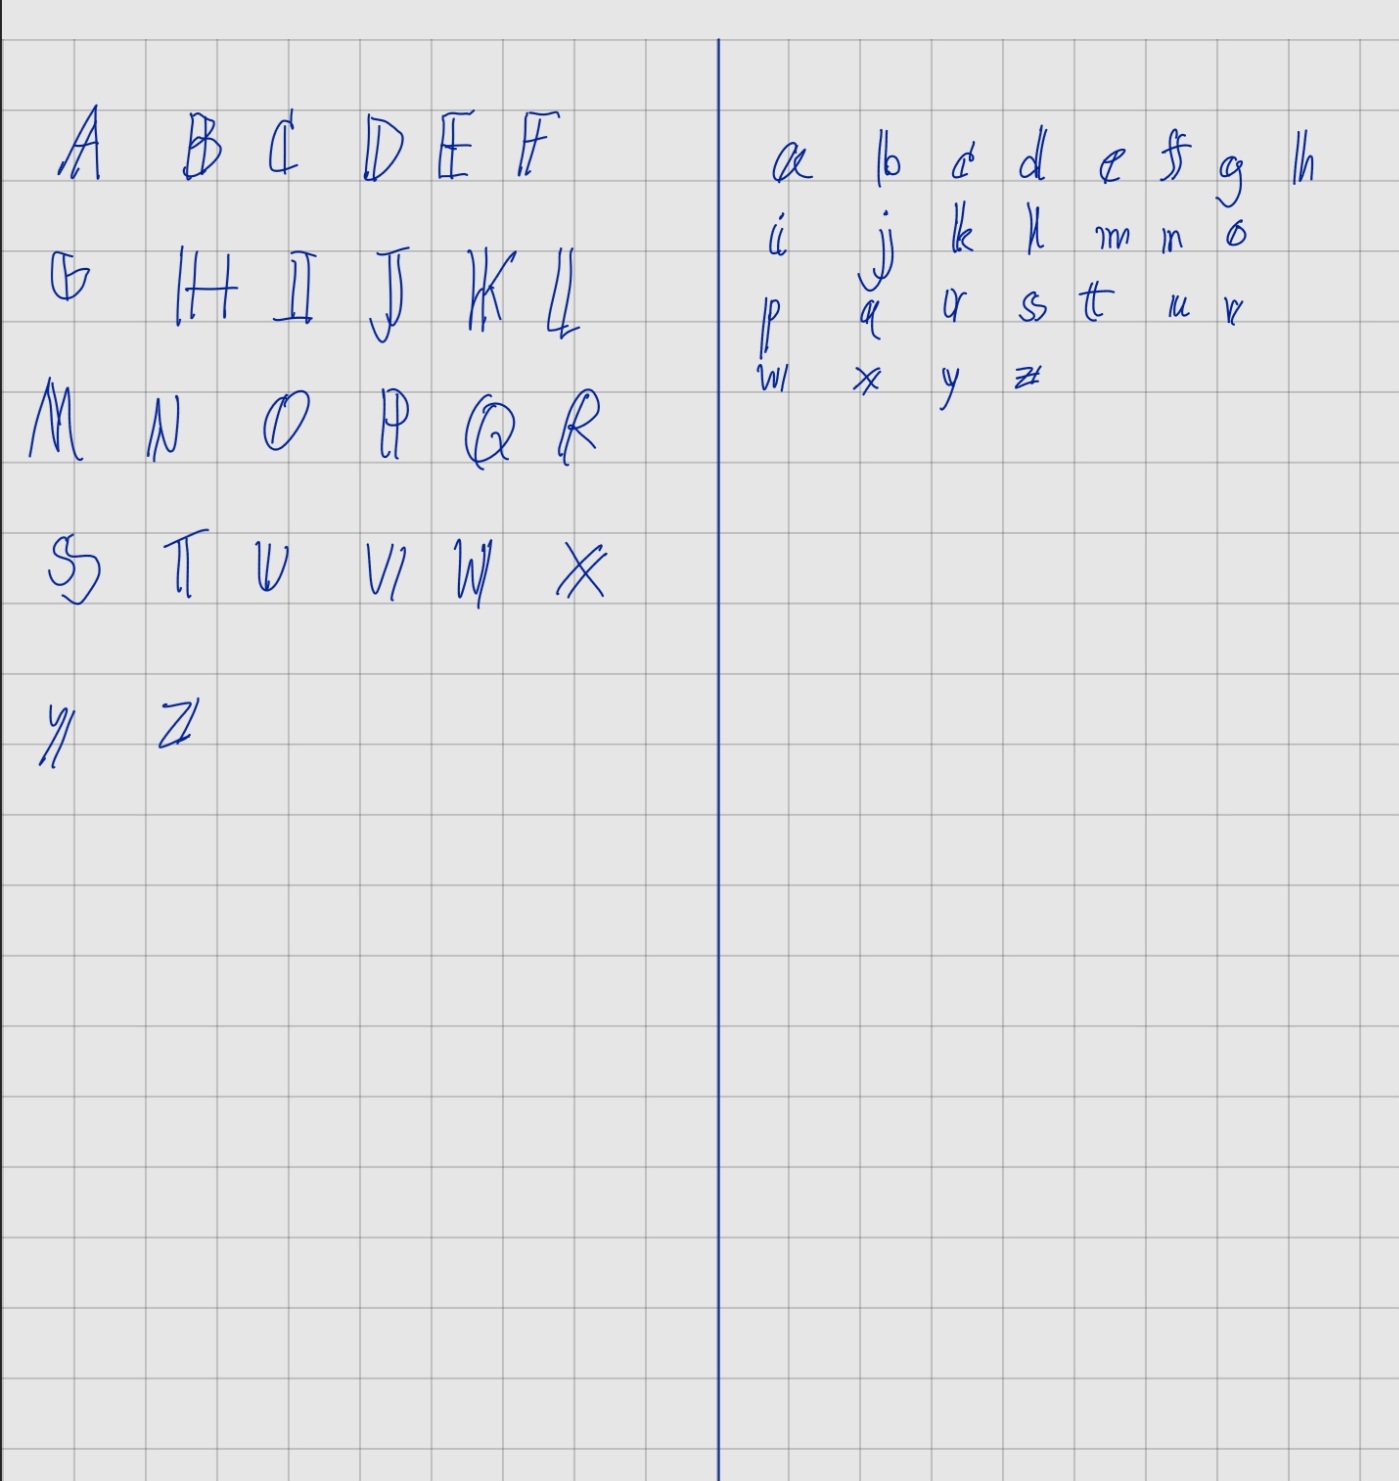 𝔸 𝔹 ℂ 𝔻 𝔼 𝔽
𝔾 ℍ 𝕀 𝕁 𝕂 𝕃
𝕄 ℕ 𝕆 ℙ ℚ ℝ
𝕊 𝕋 𝕌 𝕍 𝕎 𝕏
𝕐 ℤ
𝕒 𝕓 𝕔 𝕕 𝕖 𝕗 𝕘 𝕙
𝕚 𝕛 𝕜 𝕝 𝕞 𝕟 𝕠
𝕡 𝕢 𝕣 𝕤 𝕥 𝕦 𝕧
𝕨 𝕩 𝕪 𝕫